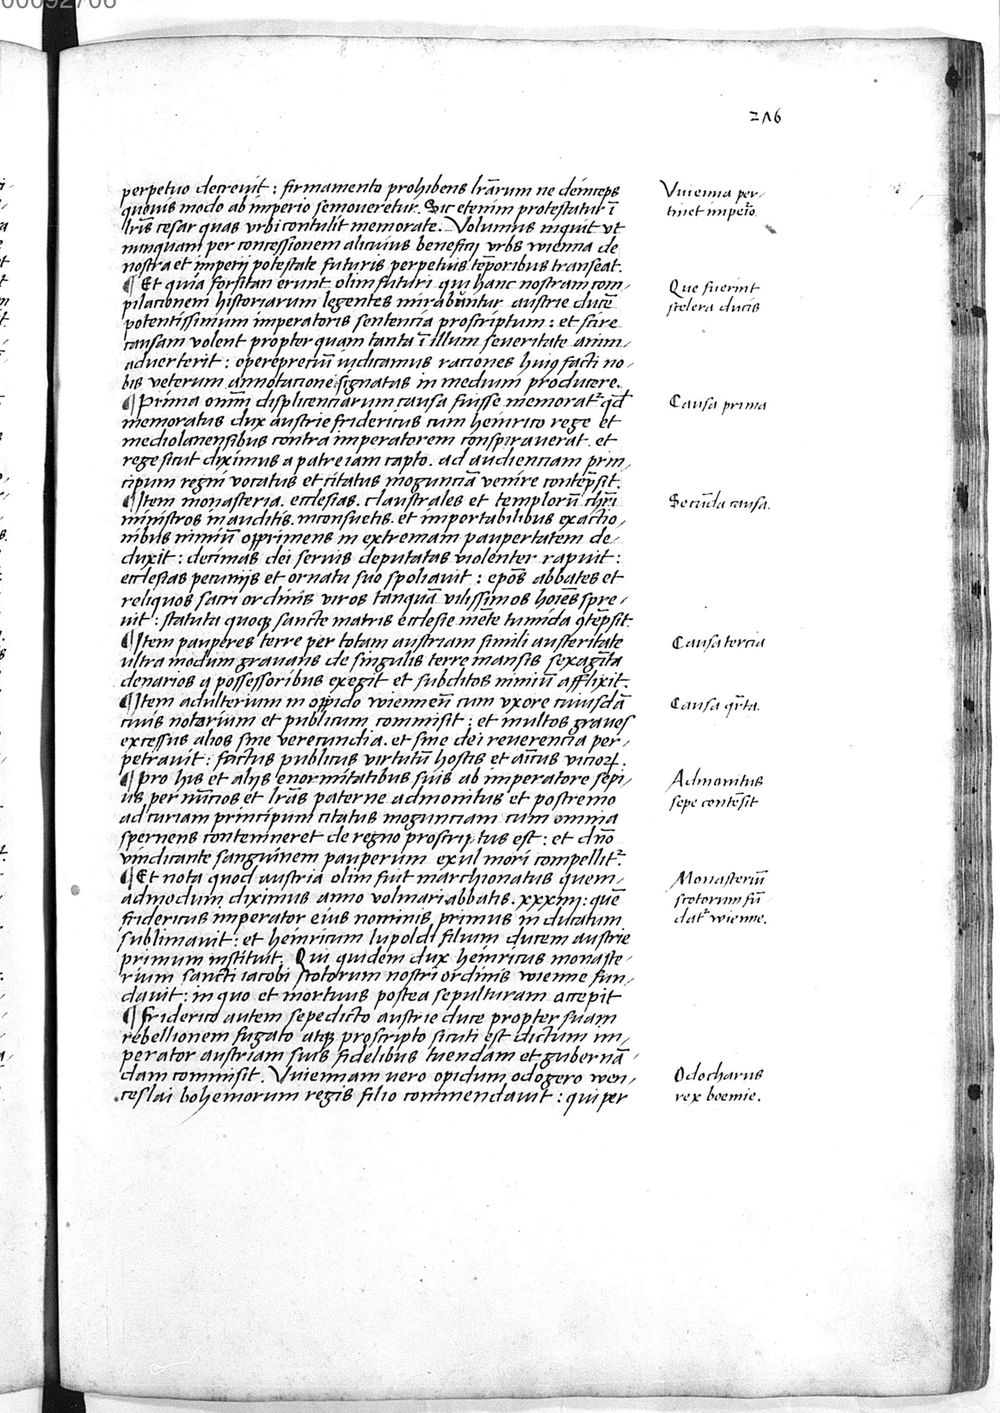 00092706
216
perpetuo decreuit : firmamento prohibens lr̃arum ne deinceps
quouis modo ab imperio semoueretur. Sic etenim protestatur ī
lrĩs cesar quas vrbi contulit memorate. Volumus inquit vt
nunquam per concessionem alicuius beneficij vrbs wienna de
nostra et imperij potestate futuris perpetuis tẽporibus transeat.
¶ Et quia forsitan erunt olim futuri qui hanc nostram com⸗
pilacionem historiarum legentes mirabuntur austrie ducẽ
potentissimum imperatoris sentencia proscriptum : et scire
causam volent propter quam tanta ī illum seueritate anim⸗
aduerterit : operepreciũ iudicamus raciones huiꝰ facti no⸗
bis veterum annotacione signatas in medium producere.
¶ Prima om̃m displicenciarum causa fuisse memorat᷑ qđ
memoratus dux austrie fridericus cum heinrico rege et
mediolanensibus contra imperatorem conspirauerat. et
rege sicut diximus a patre iam capto. ad audienciam prin⸗
cipum regni vocatus et citatus mogunciã venire contẽpsit.
¶ Item monasteria. ecclesias. claustrales et templorũ chr̃i
ministros inauditis. inconsuetis. et importabilibus exactio⸗
nibus nimiũ opprimens in extremam paupertatem de⸗
duxit : decimas dei seruis deputatas violenter rapuit :
ecclesias pecunijs et ornatu suo spoliauit : ep̃os abbates et
reliquos sacri ordinis viros tanquã vilissimos hoĩes spre⸗
uit : statuta quoqꝫ sancte matris ecclesie mẽte tumida ꝯtẽpsit.
¶ Item pauperes terre per totam austriam simili austeritate
ultra modum grauans de singulis terre mansis sexagĩta
denarios a possessoribus exegit et subditos nimiũ afflixit.
¶ Item adulterium in oppido wiennẽn cum vxore cuiusdã
ciuis notarium et publicum commisit : et multos graues
excessus alios sine verecundia. et sine dei reuerencia per⸗
petrauit : factus publicus virtutũ hostis et amĩcus vicioꝝ.
¶ Pro his et alijs enormitatibus suis ab imperatore sepi⸗
us per nũcios et lrãs paterne admonitus et postremo
ad curiam principum citatus mogunciam cum omnia
spernens contemneret de regno proscriptus est : et dñO
vindicante sanguinem pauperum exul mori compellit᷑.
¶ Et nota quod austria olim fuit marchionatus quem⸗
admodum diximus anno volmari abbatis. xxxiiij : quẽ
fridericus imperator eius nominis primus in ducatum
sublimauit : et heinricum lupoldi filium ducem austrie
primum instituit. Qui quidem dux heinricus monaste⸗
rium sancti iacobi scotorum nostri ordinis wienne fun⸗
dauit : in quo et mortuus postea sepulturam accepit
¶ Friderico autem sepedicto austrie duce propter suam
rebellionem fugato atqꝫ proscripto sicuti est dictum im⸗
perator austriam suis fidelibus tuendam et gubernã⸗
dam commisit. Vuiennam uero opidum odogero wen⸗
ceslai bohemorum regis filio commendauit : qui per
Vuienna per⸗
tinet imperio
Que fuerint
scelera ducis
Causa prima
Secũda causa.
Causa tercia
Causa qr̃ta.
Admonitus
sepe contẽsit
Monasteriũ
scotorum fũ
dat᷑ wienne.
Odocharus
rex boemie.